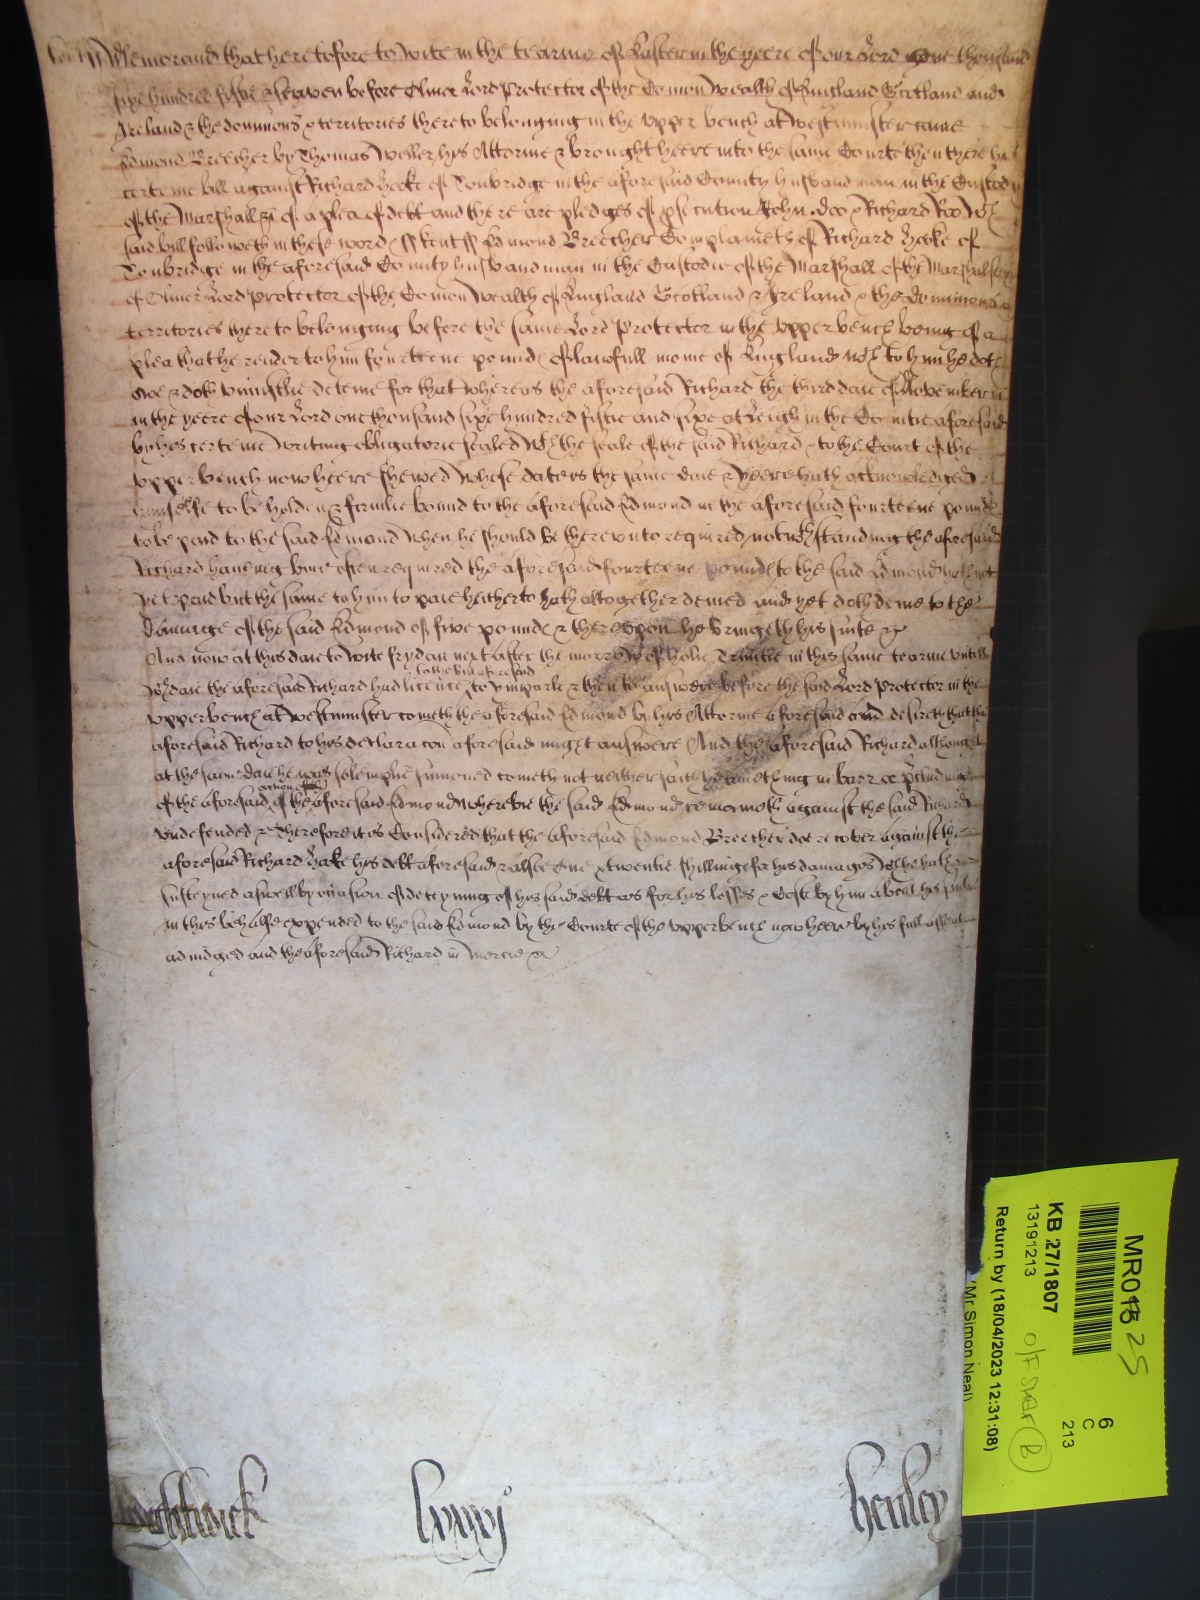 Kent ss Memorand that heretofore to wite in the tearme of Easter in the yeere of our Lord one thousand
sixe hundred fiftie & seaven before Oliver Lord Protector of the Comon Wealth of England Scotland and
Ireland & the dominions & territories thereto belonging in the upper bench at Westminster came
Edmond Breecher by Thomas Weller his Attorne & brought heere into the same Courte then there his
certeine bill against Richard Heeke of Tonbridge in the aforesaid County husbandman in the Custody
of the Marshall &c of a plea of debt and there are pledges of psecution John Doo & Richard Roo wch
said bill followeth in these word ss Kent ss Edmond Breecher Complaineth of Richard Heeke of
Tonbridge in the aforesaid County husbandman in the Custodie of the Marshall of the Marshalsey
of Oliver Lord Protector of the Comon Wealth of England Scotland & Ireland & the dominions
territories thereto belonging before the same Lord Protector in the upper bench being of a
plea that he render to him fourteene pound of lawfull monie of England wch to him he doth
owe & doth uniustlie deteine for that whereas the aforesaid Richard the third daie of November
in the yeere of our Lord one thousand sixe hundred fiftie and sixe at Leigh in the Comtie aforesaid
by his certeine writing obligatorie sealed wth the seale of the said Richard & to the Court of the
upper bench now heere shewed whose date is the same daie & yeere hath acknowledged
himselfe to be holden & firmlie bound to the aforesaid Edmond in the aforesaid fourteene pound
to be paid to the said Edmond when he should be thereunto required notwthstanding the aforesaid
Richard haueing bine often required the aforesaid fourteene pound to the said Edmond hath not
yet paid but the same to him to paie heitherto hath altogether denied and yet doth denie to the
damage of the said Edmond of five pound & thereupon he bringeth his suite &c
And now at this daie to wite fryday next after the morrow of holie Trinitie in this same tearme untill
wch daie the aforesaid Richard had licence to the bill aforesaid to imparle & then to answere before the said Lord Protector in the
upper bench at Westminster cometh the aforesaid Edmond by his Attorne aforesaid and desireth that the
aforesaid Richard to his declaracon aforesaid might answere And the aforesaid Richard although
at the same day he was solemplie sumoned cometh not neither saith he anie thing in barr or pcluding
of the aforesaid action of the aforesaid Edmond whereby the said Edmond remaineth against the said Richard
undefended & Therefore it is Considered that the aforesaid Edmond Breecher doe recover against the
aforesaid Richard Heeke his debt aforesaid & alsoe one & twentie shillinge for his damages wch he hath
susteyned aswell by occasion of deteyning of his said debt as for his losses & Coste by him about his suite
in this behalfe expended to the said Edmond by the Courte of the upper bench now heere by his full assent
adiudged and the aforesaid Richard in mercie &c
Lyghtwick
lxxxj
henley
MR015
25
6
C
213
KB 27/1807
13191213
O/F Shelf B
Return by (18/04/2023 12:31:08)
(Mr Simon Neal)